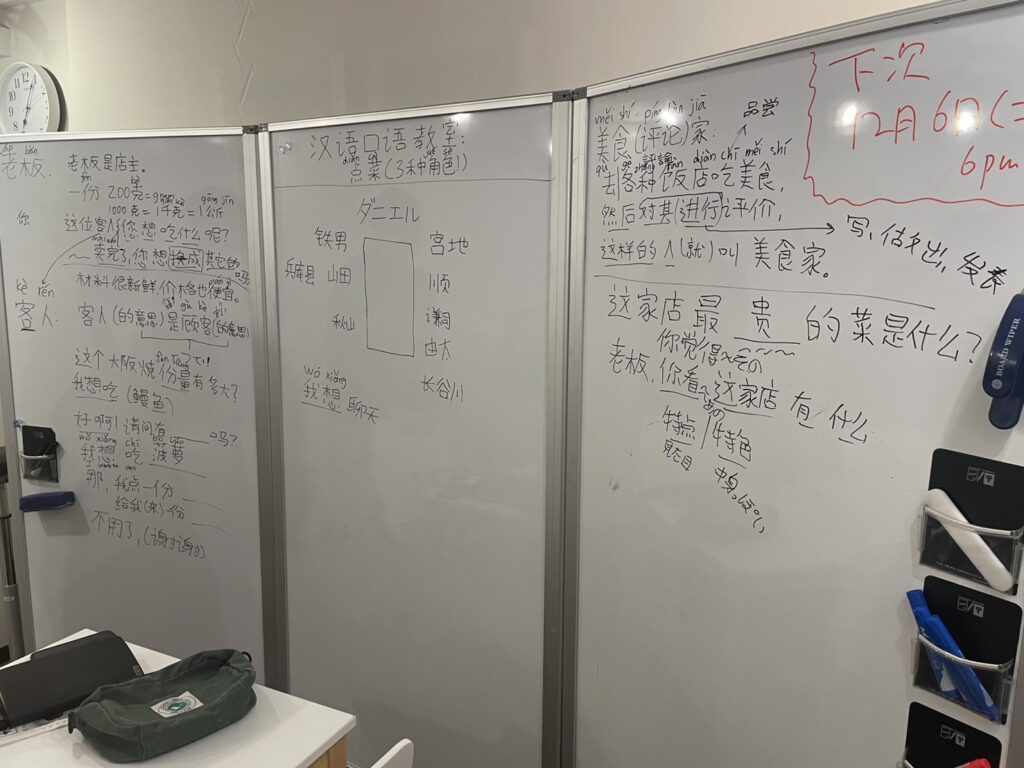 老板.
老板是店主。
一份 200克=
1000克=1千克=1公斤
gōng jīn
你
这位客人,您想吃什么呢?
卖完了,您想换成其它的吗?
材料很新鲜,价格也便宜。
kè rén
客人:
客人(的意思)是顾客(的意思)
这个大阪烧份量有多大?
我想吃(鳗鱼)
好啊!请问有____吗?
wǒ xiǎng chī bō luó
我想吃菠萝
那,我点一份____
给我(来)一份____
不用了,(谢谢)
汉语口语教室:
点菜(3种角色!)
ダニエル
铁男
宮地
兵庫县 山田
順
秋山
謙司
由太
长谷川
wǒ xiǎng
我想 聊天
měi shí píng lùn jiā
品尝
美食(评论)家:
qù gè zhǒng fàn diàn chī měi shí
去各种饭店吃美食,
然后对其进行评价,
写,估名出,发表
这样的人(就)叫 美食家。
这家店最 贵 的菜是什么?
你觉得~
老板,你看~这家店有什么
特点/特色
下次
12月6日(
6pm
BOARD WIPER